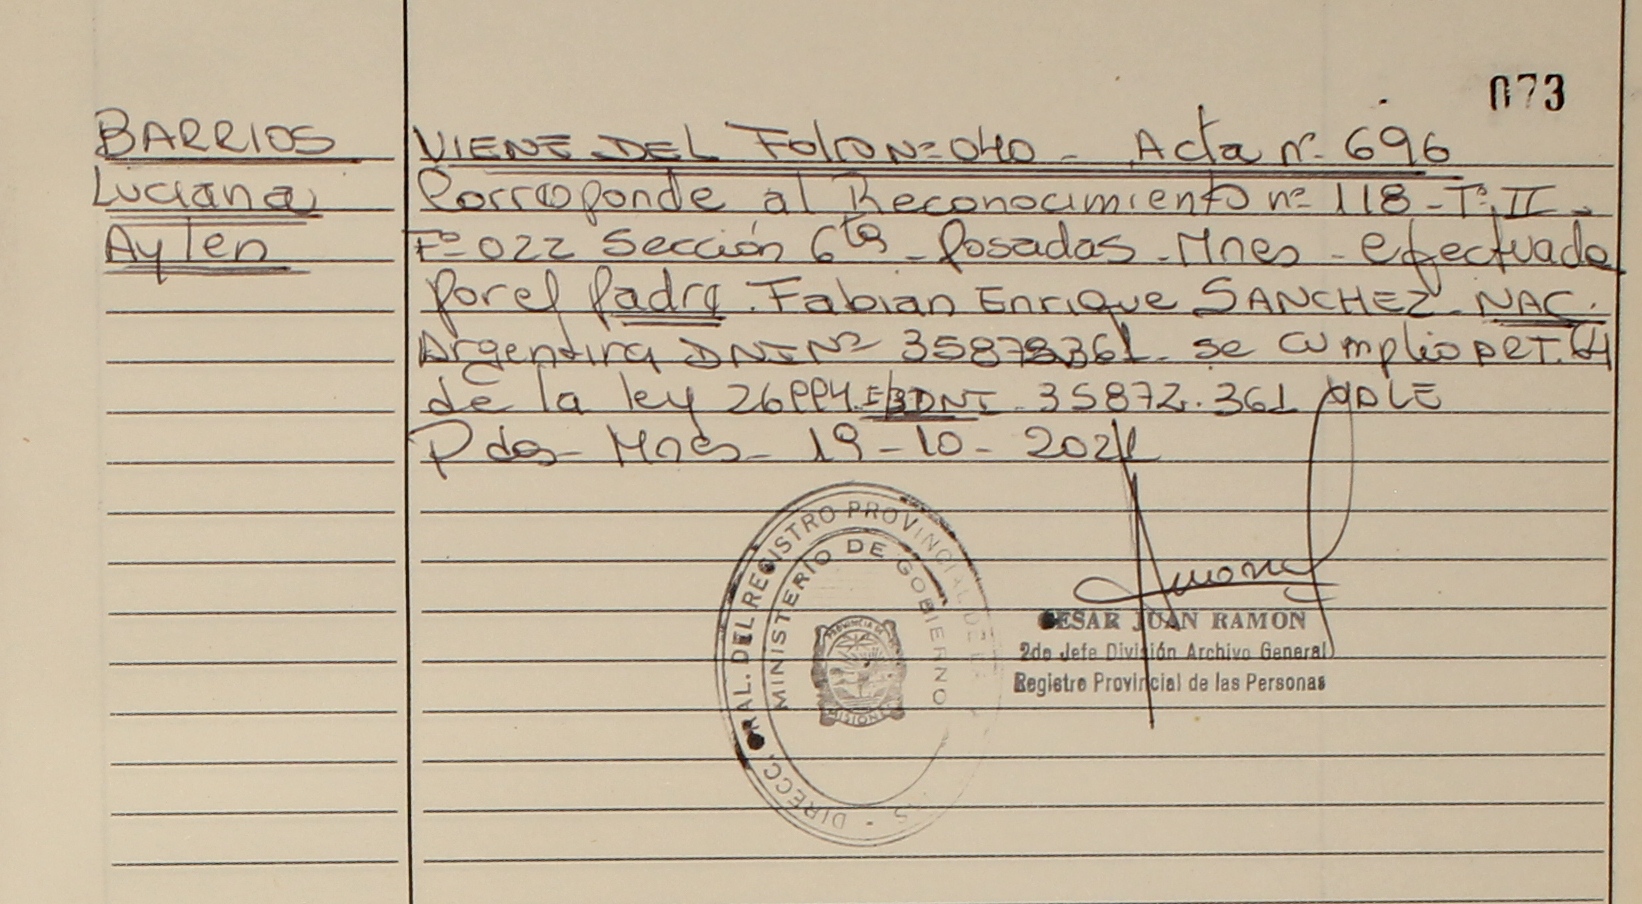 073
BARRIOS
Luciana
Aylen
VIENE DEL Folio Nº 040 - Acta nº 696
Corresponde al Reconocimiento nº 118 - Tº II -
Fº 022 Sección 6ta - Posadas - Mnes - efectuado
por el padre. Fabian Enrique SANCHEZ - NAC.
Argentina DNI Nº 35872361 - se cumplio ART. 64
de la ley 26994. DNI 35872.361 VALE
Pdas - Mnes - 19-10-2021
DIRECC. GRAL. DEL REGISTRO PROVINCIAL DE LAS
MINISTERIO DE GOBIERNO
PROVINCIA DE
MISIONES
CESAR JUAN RAMON
2do Jefe División Archivo General
Registro Provincial de las Personas